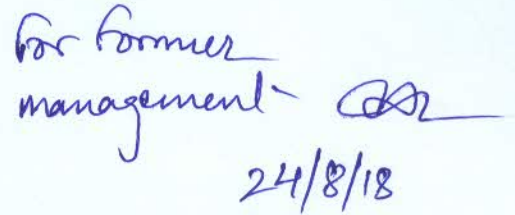 For Former
management-
24/8/18